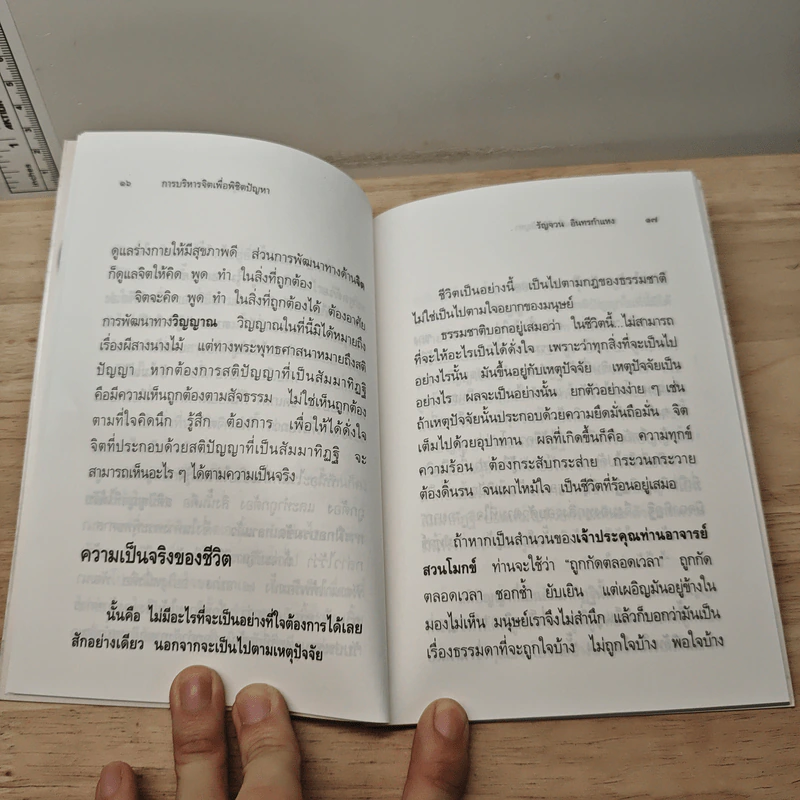 ๑๖ การบริหารจิตเพื่อพิชิตปัญหา
ดูแลร่างกายให้มีสุขภาพดี ส่วนการพัฒนาทางด้านจิต
ก็ดูแลจิตให้คิด พูด ทำ ในสิ่งที่ถูกต้อง
จิตจะคิด พูด ทำ ในสิ่งที่ถูกต้องได้ ต้องอาศัย
การพัฒนาทางวิญญาณ วิญญาณในที่นี้มิได้หมายถึง
เรื่องผีสางนางไม้ แต่ทางพระพุทธศาสนาหมายถึงสติ
ปัญญา หากต้องการสติปัญญาที่เป็นสัมมาทิฏฐิ
คือมีความเห็นถูกต้องตามสัจธรรม ไม่ใช่เห็นถูกต้อง
ตามที่ใจคิดนึก รู้สึก ต้องการ เพื่อให้ได้ดั่งใจ
จิตที่ประกอบด้วยสติปัญญาที่เป็นสัมมาทิฏฐิ จะ
สามารถเห็นอะไร ๆ ได้ตามความเป็นจริง
ความเป็นจริงของชีวิต
นั้นคือ ไม่มีอะไรที่จะเป็นอย่างที่ใจต้องการได้เลย
สักอย่างเดียว นอกจากจะเป็นไปตามเหตุปัจจัย
รัญจวน อินทรกำแหง ๑๗
ชีวิตเป็นอย่างนี้ เป็นไปตามกฎของธรรมชาติ
ไม่ใช่เป็นไปตามใจอยากของมนุษย์
ธรรมชาติบอกอยู่เสมอว่า ในชีวิตนี้...ไม่สามารถ
ที่จะให้อะไรเป็นได้ดั่งใจ เพราะว่าทุกสิ่งที่จะเป็นไป
อย่างไรนั้น มันขึ้นอยู่กับเหตุปัจจัย เหตุปัจจัยเป็น
อย่างไร ผลจะเป็นอย่างนั้น ยกตัวอย่างง่าย ๆ เช่น
ถ้าเหตุปัจจัยนั้นประกอบด้วยความยึดมั่นถือมั่น จิต
เต็มไปด้วยอุปาทาน ผลที่เกิดขึ้นก็คือ ความทุกข์
ความร้อน ต้องกระสับกระส่าย กระวนกระวาย
ต้องดิ้นรน จนเผาไหม้ใจ เป็นชีวิตที่ร้อนอยู่เสมอ
ถ้าหากเป็นสำนวนของเจ้าประคุณท่านอาจารย์
สวนโมกข์ ท่านจะใช้ว่า "ถูกกัดตลอดเวลา" ถูกกัด
ตลอดเวลา ชอกช้ำ ยับเยิน แต่เผอิญมันอยู่ข้างใน
มองไม่เห็น มนุษย์เราจึงไม่สำนึก แล้วก็บอกว่ามันเป็น
เรื่องธรรมดาที่จะถูกใจบ้าง ไม่ถูกใจบ้าง พอใจบ้าง